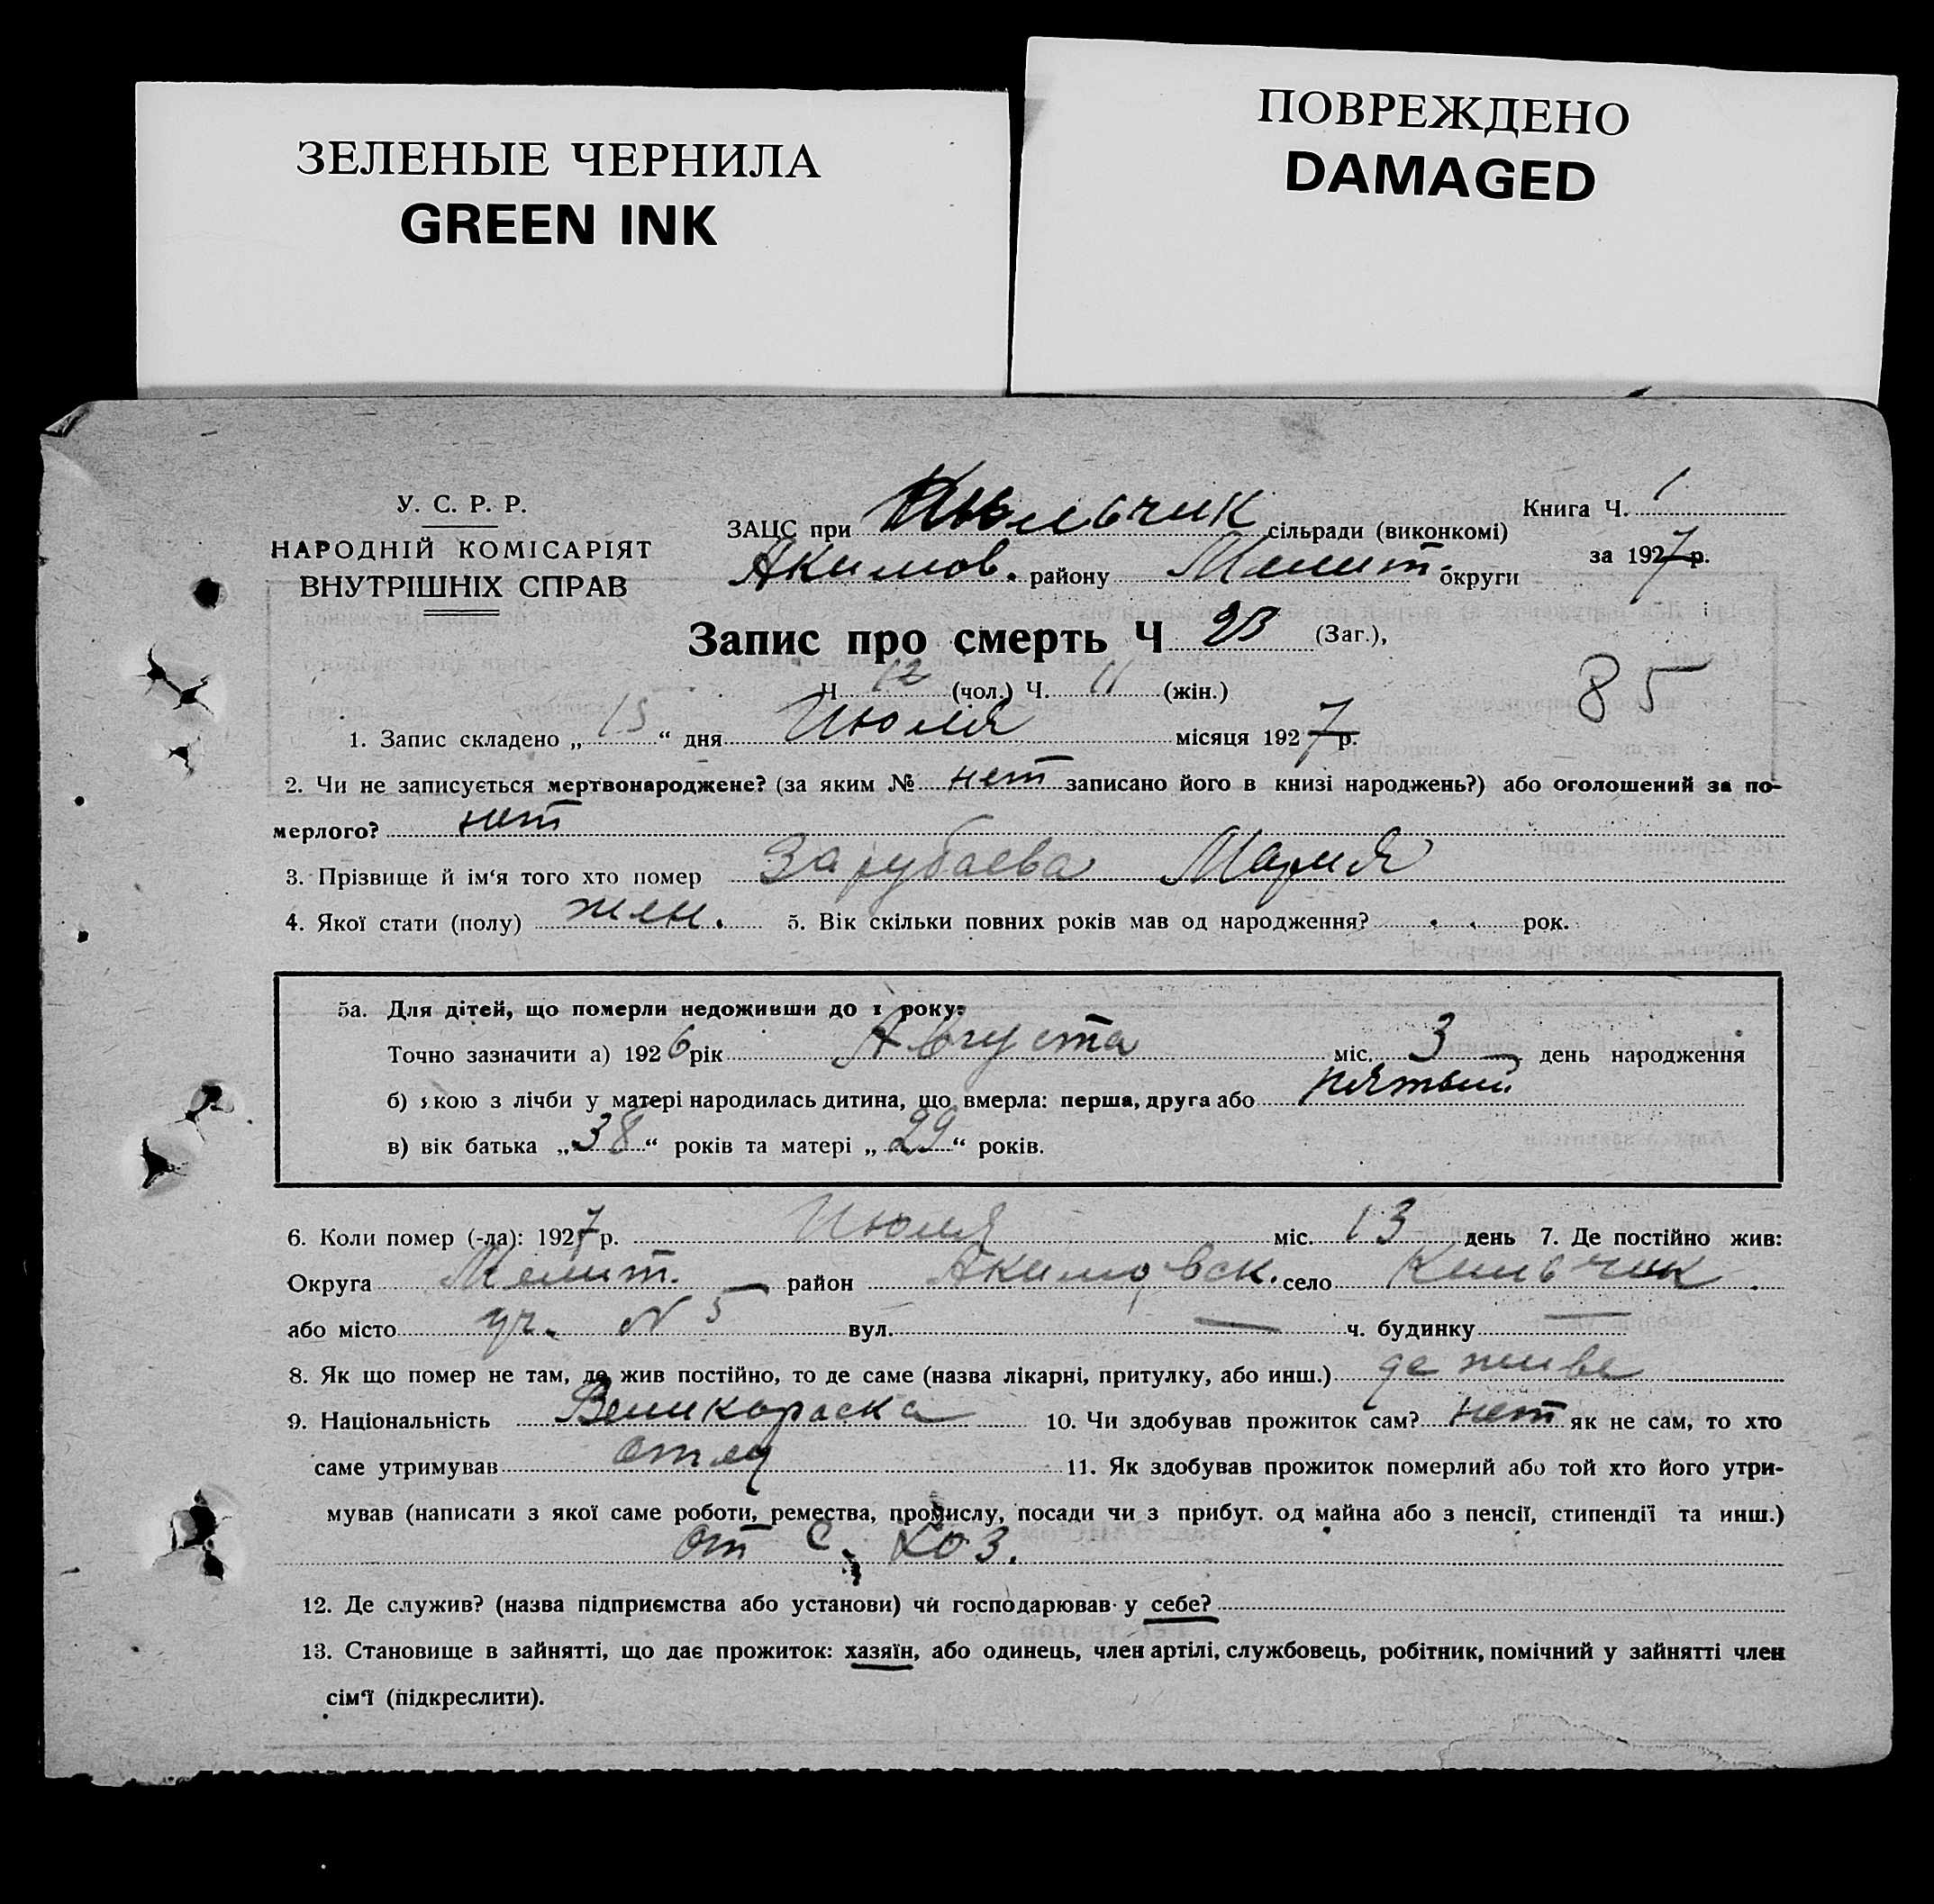 ЗЕЛЕНЫЕ ЧЕРНИЛА
GREEN INK
ПОВРЕЖДЕНО
DAMAGED
У. С. Р. Р.
НАРОДНІЙ КОМІСАРІЯТ
ВНУТРІШНІХ СПРАВ
ЗАЦС при Кильчик сільради (виконкомі)
Акимов. району Мелит. округи
Книга Ч. 1
за 1927 р.
Запис про смерть Ч 23 (Заг.),
Ч 12 (чол.) Ч. 11 (жін.)
85
1. Запис складено „ 15 “ дня Июля місяця 1927 р.
2. Чи не записується мертвонароджене? (за яким № нет записано його в книзі народжень?) або оголошений за по-
мерлого? нет
3. Прізвище й ім‘я того хто помер Зарубаева Мария
4. Якої стати (полу) жен. 5. Вік скільки повних років мав од народження? . . рок.
5а. Для дітей, що померли недоживши до 1 року:
Точно зазначити а) 1926 рік Августа міс. 3 день народження
б) якою з лічби у матері народилась дитина, що вмерла: перша, друга або пятый
в) вік батька „ 38 “ років та матері „ 29 “ років.
6. Коли помер (-ла): 1927 р. Июля міс. 13 день 7. Де постійно жив:
Округа Мелит. район Акимовск. село Кильчик
або місто уч. N 5 вул. — ч. будинку —
8. Як що помер не там, де жив постійно, то де саме (назва лікарні, притулку, або инш.) де живе
9. Національність Великораска 10. Чи здобував прожиток сам? нет як не сам, то хто
саме утримував отец 11. Як здобував прожиток померлий або той хто його утри-
мував (написати з якої саме роботи, ремества, промислу, посади чи з прибут. од майна або з пенсії, стипендії та инш.)
от с. хоз.
12. Де служив? (назва підприємства або установи) чи господарював у себе?
13. Становище в зайнятті, що дає прожиток: хазяїн, або одинець, член артілі, службовець, робітник, помічний у зайнятті член
сім‘ї (підкреслити).